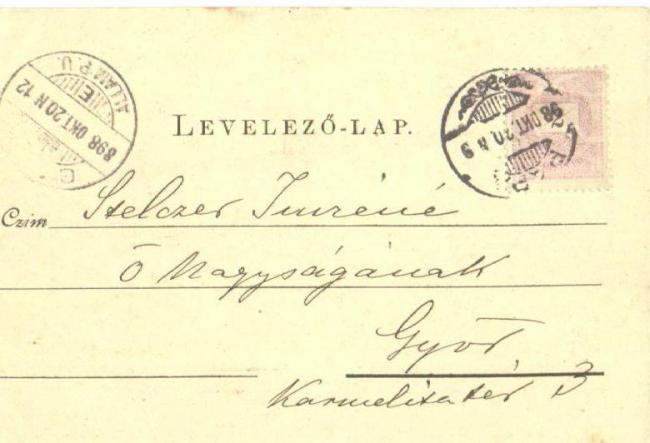 ÁLLAM P.U.
898 OKT. 20 N 12
LEVELEZŐ-LAP.
98 OKT 20 N 9
Czim Stelczer Imréné
Ő Nagyságának
Győr,
Karmelita tér 3